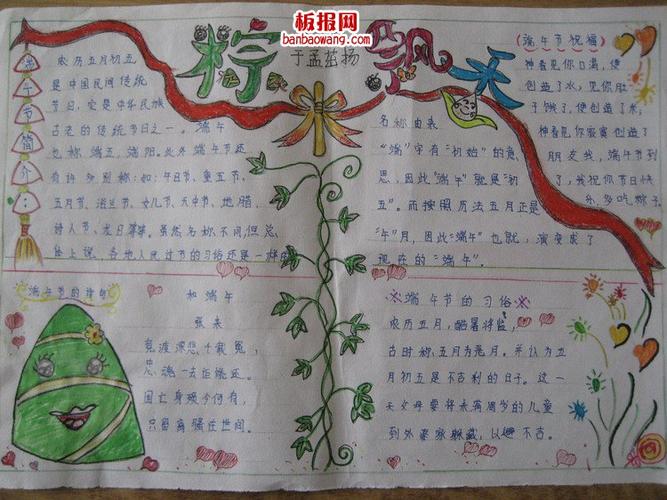 板报网
banbaowang.com
粽
飘
天
于孟茁扬
端午节简介:
农历五月初五
是中国民间传统
节日,它是中华民族
古老的传统节日之一。端午
也称端五,端阳。此外端午节还
有许多别称:如:午日节、重五节、
五月节、浴兰节、女儿节、天中节、地腊、
诗人节、龙日等等。虽然名称不同,但总
体上说,各地人民过节的习俗还是一样的
名称由来
“端”字有“初始”的意
思,因此“端午”就是“初
五”。而按照历法五月正是
“午”月,因此“端午”也就演变成了
现在的“端午”。
(端午节祝福)
神看见你口渴,便
创造了水,见你肚
子饿了,便创造了米,
神看见你寂寞创造了
朋友我,端午节到
了,我祝你节日快
乐,多吃粽子
端午节的诗句
和端午
张耒
竞渡深悲千载冤,
忠魂一去讵能还。
国亡身殒今何有,
只留离骚在世间。
※端午节的习俗※
农历五月,酷暑将临,
古时称五月为恶月。并认为五
月初五是不吉利的日子。这一
天父母要将未满周岁的儿童
到外婆家躲藏,以避不吉。